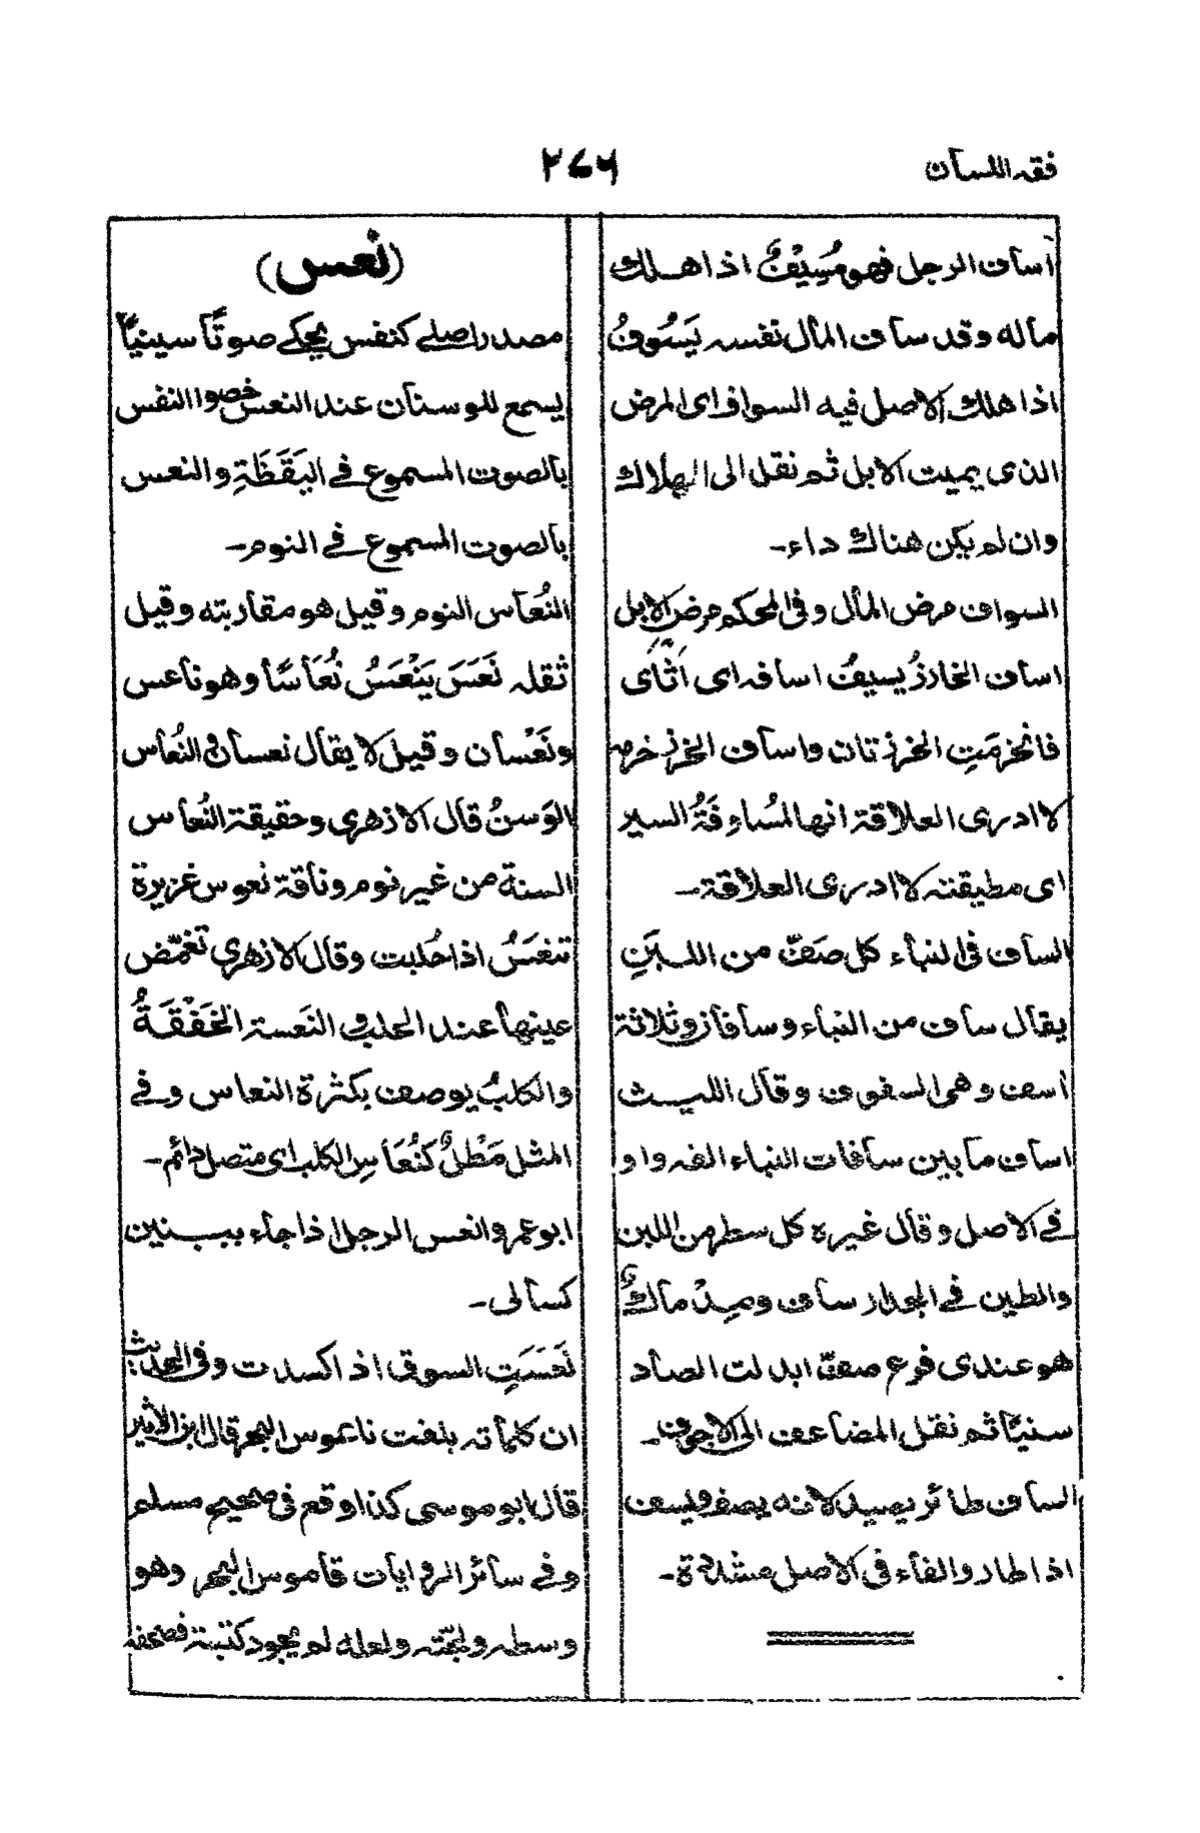 فقه اللسان
٢٧٦
أساف الرجل فهو مُسِيْفٌ اذا هلك
ماله وقد ساف المال نفسه يَسُوفُ
اذا هلك الاصل فيه السواف اى المرض
الذى يميت الابل ثم نقل الى الهلاك
وان لم يكن هناك داء-
السواف مرض المال وفي المحكم مرض الابل
اساف الخارزُ يسيفُ اسافه اى اَثْأى
فانخرمَتِ الخرزتان واساف الخرز خرمه
لا ادرى العلاقة انها لمُساوِفَةُ السير
اى مطيقته لا ادرى العلاقة-
الساف فى البناء كل صَفّ من اللَبِنِ
يقال ساف من البناء وسافان وثلاثة
أسف وهى السفوف وقال الليث
اساف ما بين سافات البناء الفه واو
في الاصل وقال غيره كل سطر من اللبن
والطين في الجدار ساف ومِدْماكٌ
هو عندى فرع صفّ ابدلت الصاد
سنيًا ثم نقل المضاعف الى الاجوف-
الساف طائر يصيد لانه يصف ويسف
اذا طار والفاء فى الاصل مشددة-
(نعس)
مصدر اصلي كنفس يحكي صوتًا سينيًا
يسمع للوسنان عند النعس خصوا النفس
بالصوت المسموع في اليَقَظَةِ والنعس
بالصوت المسموع في النوم-
النُعاس النوم وقيل هو مقاربته وقيل
ثقله نَعَسَ يَنْعَسُ نُعَاسًا وهو ناعس
ونَعْسان وقيل لا يقال نعسان و النُعاس
الوَسنُ قال الازهرى وحقيقة النُعاس
السنة من غير نوم وناقة نعوس غزيرة
تنعَسُ اذا حُلبت وقال الازهرى تغمّض
عينها عند الحلب و النَعسة الخَفْقَةُ
والكلبُ يوصف بكثرة النعاس وفي
المثل مَطْلٌ كَنُعَاسِ الكلب اى متصل دائم-
ابو عمرو انعس الرجل اذا جاء ببنين
كسالى-
نَعَسَتِ السوق اذا كسدت وفي الحديث
ان كلماته بلغت ناعوس البحر قال ابن الاثير
قال ابو موسى كذا وقع فى صحيح مسلم
وفي سائر الروايات قاموس البحر وهو
وسطه ولجّته ولعله لم يجود كتبته فصحفه